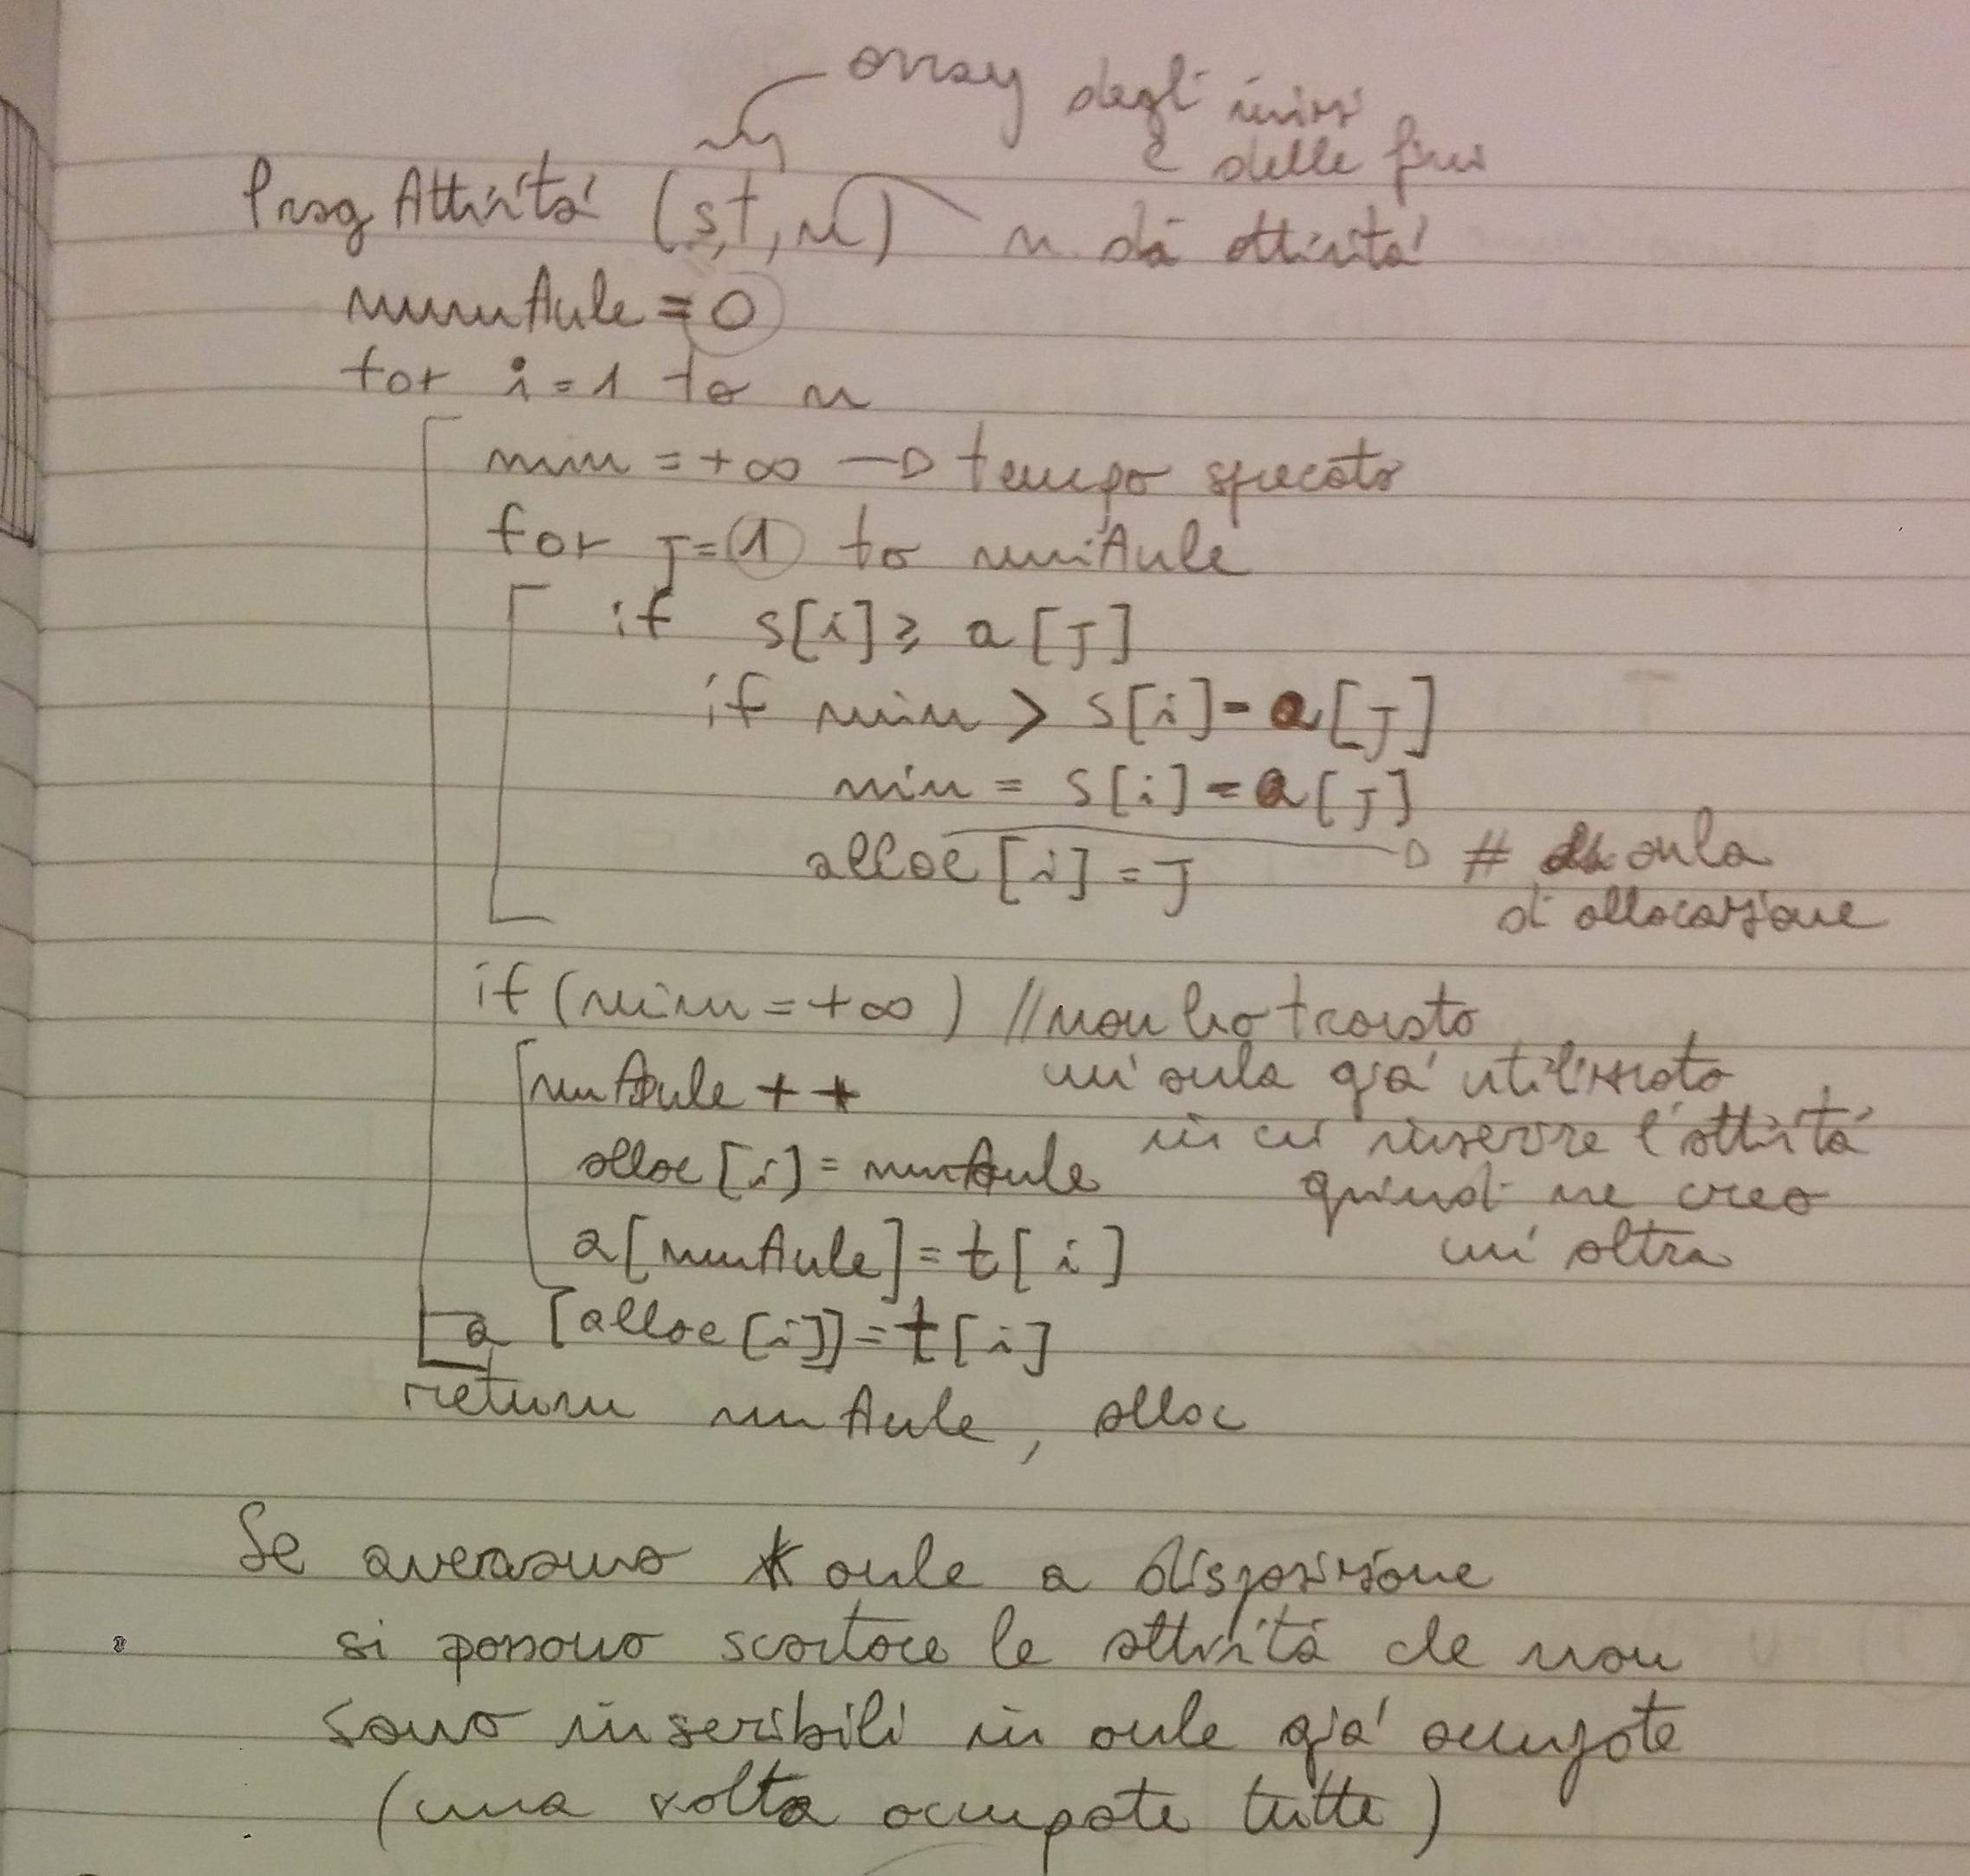 array degli inizi
e delle fini
ProgAttività (s,t,n) n. di attività
numAule = 0
for i = 1 to n
min = +∞ → tempo sprecato
for J = 1 to numAule
if s[i] ≥ a[J]
if min > s[i] - a[J]
min = s[i] - a[J]
alloc[i] = J → # aula
di allocazione
if (min = +∞) // non ho trovato
numAule ++ un'aula già utilizzata
in cui inserire l'attività
alloc[i] = numAule
quindi ne creo
a[numAule] = t[i] un'altra
a [alloc[i]] = t[i]
return numAule, alloc
Se avessimo K aule a disposizione
si possono scartare le attività che non
sono inseribili in aule già occupate
(una volta occupate tutte)